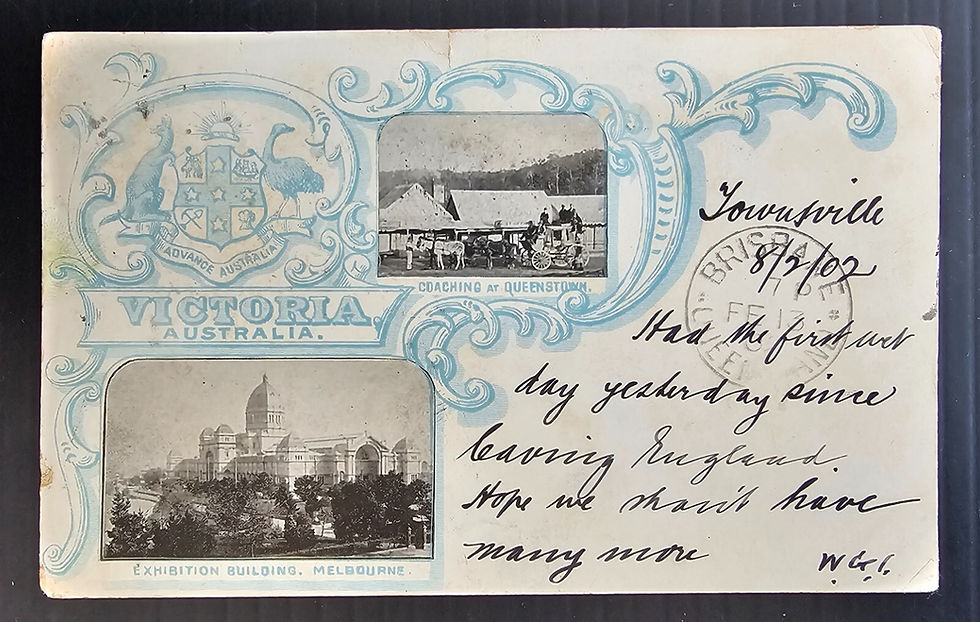 ADVANCE AUSTRALIA
VICTORIA,
AUSTRALIA.
COACHING AT QUEENSTOWN.
EXHIBITION BUILDING. MELBOURNE.
Townsville
8/2/02
Had the first wet
day yesterday since
leaving England.
Hope we shan't have
many more
W.G.
BRISBANE
FE 13